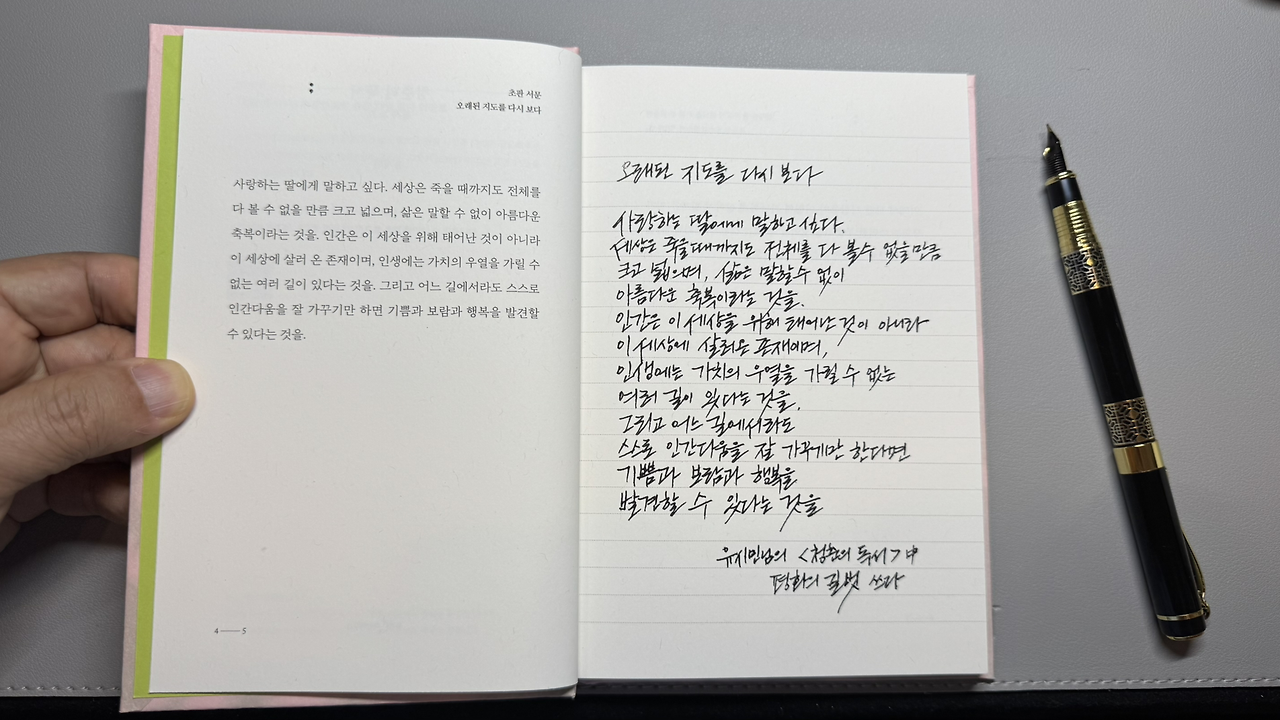 초판 서문
오래된 지도를 다시 보다
사랑하는 딸에게 말하고 싶다. 세상은 죽을 때까지도 전체를
다 볼 수 없을 만큼 크고 넓으며, 삶은 말할 수 없이 아름다운
축복이라는 것을. 인간은 이 세상을 위해 태어난 것이 아니라
이 세상에 살러 온 존재이며, 인생에는 가치의 우열을 가릴 수
없는 여러 길이 있다는 것을. 그리고 어느 길에서라도 스스로
인간다움을 잘 가꾸기만 하면 기쁨과 보람과 행복을 발견할
수 있다는 것을.
4 — 5
오래된 지도를 다시 보다
사랑하는 딸에게 말하고 싶다.
세상은 죽을때까지도 전체를 다 볼수 없을만큼
크고 넓으며, 삶은 말할수 없이
아름다운 축복이라는 것을.
인간은 이 세상을 위해 태어난 것이 아니라
이 세상에 살러온 존재이며,
인생에는 가치의 우열을 가릴 수 없는
여러 길이 있다는 것을.
그리고 어느 길에서라도
스스로 인간다움을 잘 가꾸게만 한다면
기쁨과 보람과 행복을
발견할 수 있다는 것을
유시민님의 <청춘의 독서> 中
평화의 길벗 쓰다